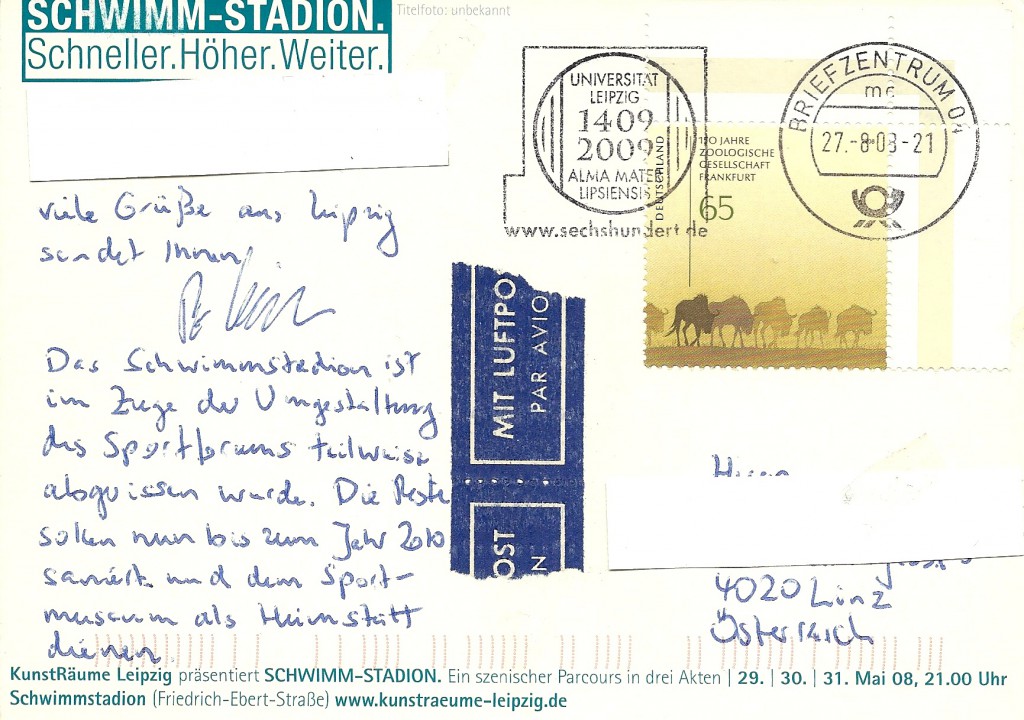 SCHWIMM-STADION.
Schneller.Höher.Weiter.
Titelfoto: unbekannt
UNIVERSITÄT
LEIPZIG
1409
2009
ALMA MATER
LIPSIENSIS
www.sechshundert.de
BRIEFZENTRUM 04
mc
27.-8.08-21
DEUTSCHLAND
150 JAHRE
ZOOLOGISCHE
GESELLSCHAFT
FRANKFURT
65
viele Grüße aus Leipzig
sendet Ihnen
Das Schwimmstadion ist
im Zuge der Umgestaltung
des Sportforums teilweise
abgerissen wurde. Die Reste
sollen nun bis zum Jahr 2010
saniert und dem Sport-
museum als Heimstatt
dienen.
MIT LUFTPO
PAR AVIO
OST
N
Herrn
4020 Linz
Österreich
KunstRäume Leipzig präsentiert SCHWIMM-STADION. Ein szenischer Parcours in drei Akten | 29. | 30. | 31. Mai 08, 21.00 Uhr
Schwimmstadion (Friedrich-Ebert-Straße) www.kunstraeume-leipzig.de